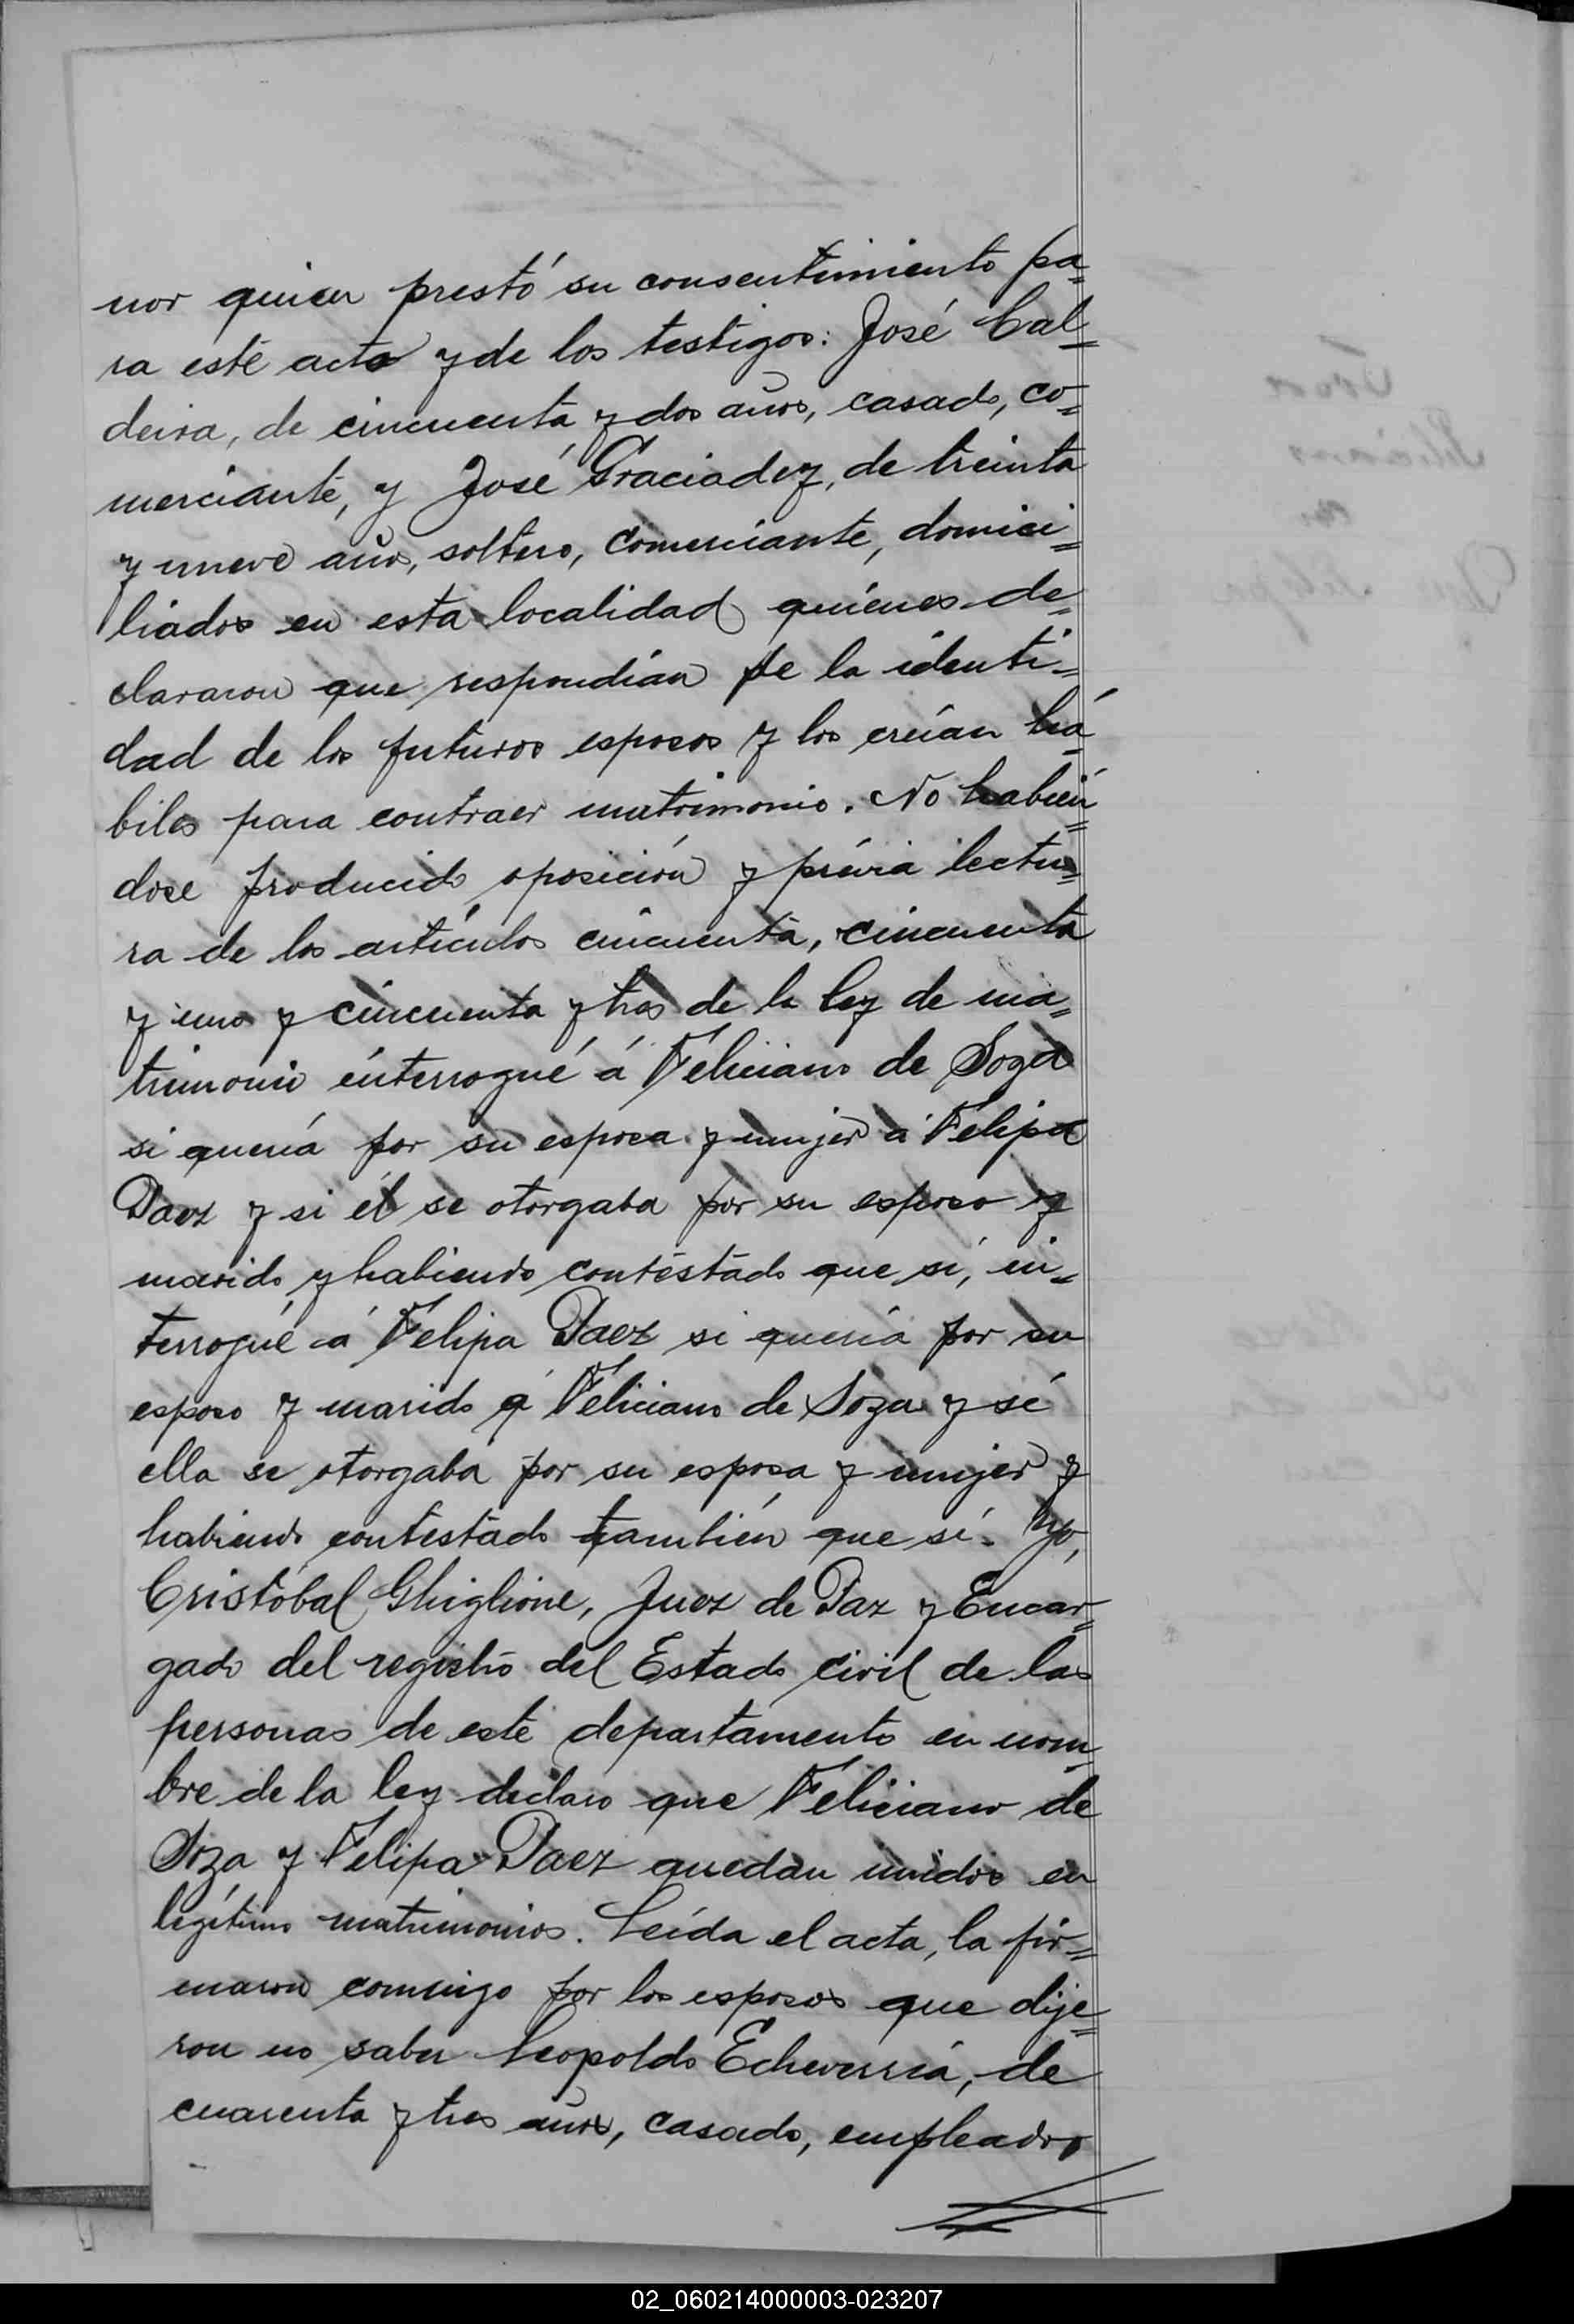 nor quien prestó su consentimiento pa=
ra este acto y de los testigos: José Cal=
deira, de cincuenta y dos años, casado, co=
merciante, y José Graciadez, de treinta
y nueve años, soltero, comerciante, domici=
liados en esta localidad quienes de=
clararon que respondían de la identi=
dad de los futuros esposos y los creían há=
biles para contraer matrimonio. No habién=
dose producido oposición y prévia lectu=
ra de los artículos cincuenta, cincuenta
y uno y cincuenta y tres de la ley de ma=
trimonio interrogué á Feliciano de Soza
si quería por su esposa y mujer á Felipa
Paez y si él se otorgaba por su esposo y
marido y habiendo contestado que sí, in=
terrogué á Felipa Paez si quería por su
esposo y marido á Feliciano de Soza y si
ella se otorgaba por su esposa y mujer y
habiendo contestado también que sí. Yo,
Cristóbal Ghiglione, Juez de Paz y Encar=
gado del registro del Estado civil de las
personas de este departamento en nom=
bre de la ley declaro que Feliciano de
Soza y Felipa Paez quedan unidos en
legítimo matrimonios. Leída el acta, la fir=
maron conmigo por los esposos que dije=
ron no saber Leopoldo Echeverría, de
cuarenta y tres años, casado, empleado,
02_060214000003-023207